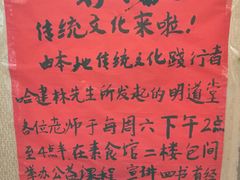 传统文化来啦！
由本地传统文化践行者
哈建林先生所发起的明道堂
各位老师于每周六下午2点
至4点半在素食馆二楼包间
举办公益课程 宣讲四书首经